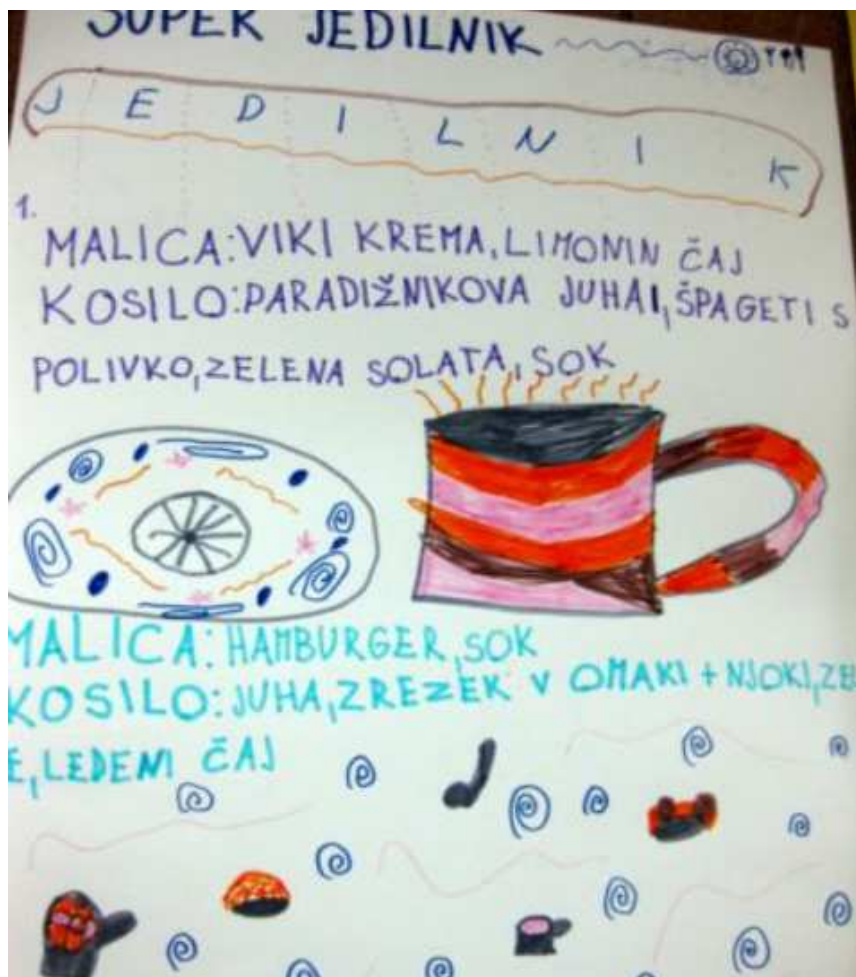 SUPER JEDILNIK
JEDILNIK
1.
MALICA: VIKI KREMA, LIMONIN ČAJ
KOSILO: PARADIŽNIKOVA JUHA1, ŠPAGETI S
POLIVKO, ZELENA SOLATA, SOK
MALICA: HAMBURGER, SOK
KOSILO: JUHA, ZREZEK V OMAKI + NJOKI, ZE
E, LEDENI ČAJ